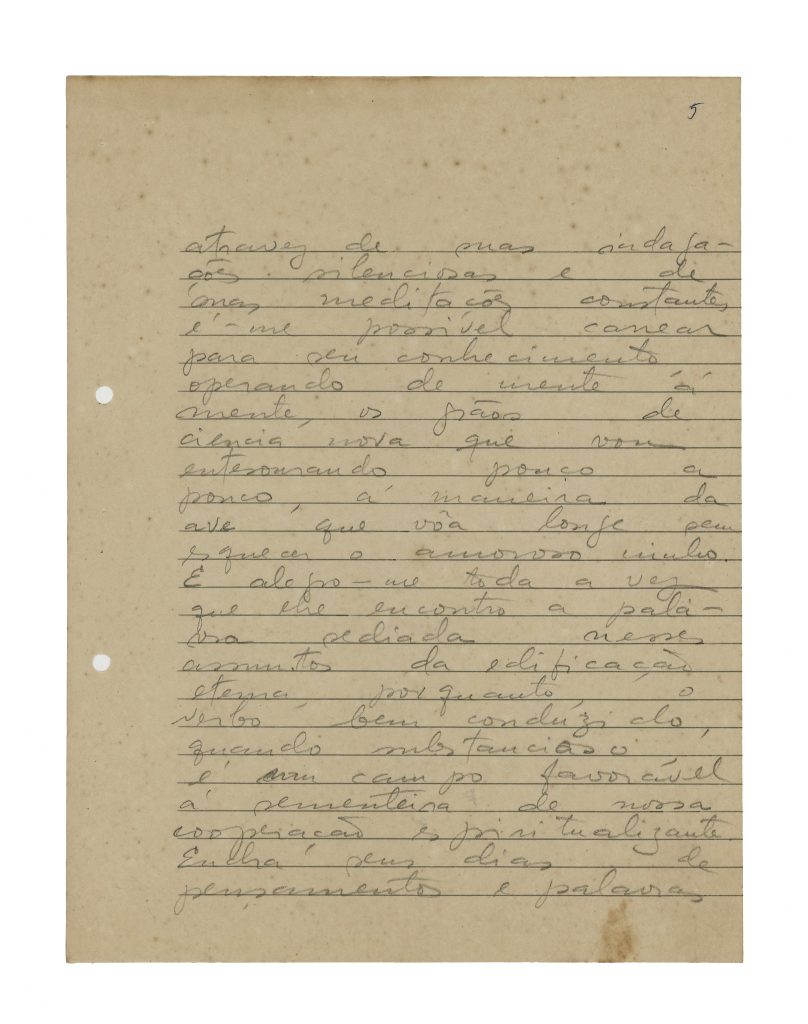 5
atravez de suas indaga-
ções silenciosas e de
suas meditações constantes
é-me possível carrear
para seu conhecimento,
operando de mente á
mente, os grãos de
ciencia nova que vou
entesourando pouco a
pouco, á maneira da
ave que vôa longe sem
esquecer o amoroso ninho.
E alegro-me toda a vez
que lhe encontro a pala-
vra sediada nesses
assuntos da edificação
eterna, porquanto, o
verbo bem conduzido,
quando substancioso,
é um campo favorável
á sementeira de nossa
cooperação espiritualizante.
Encha seus dias de
pensamentos e palavras